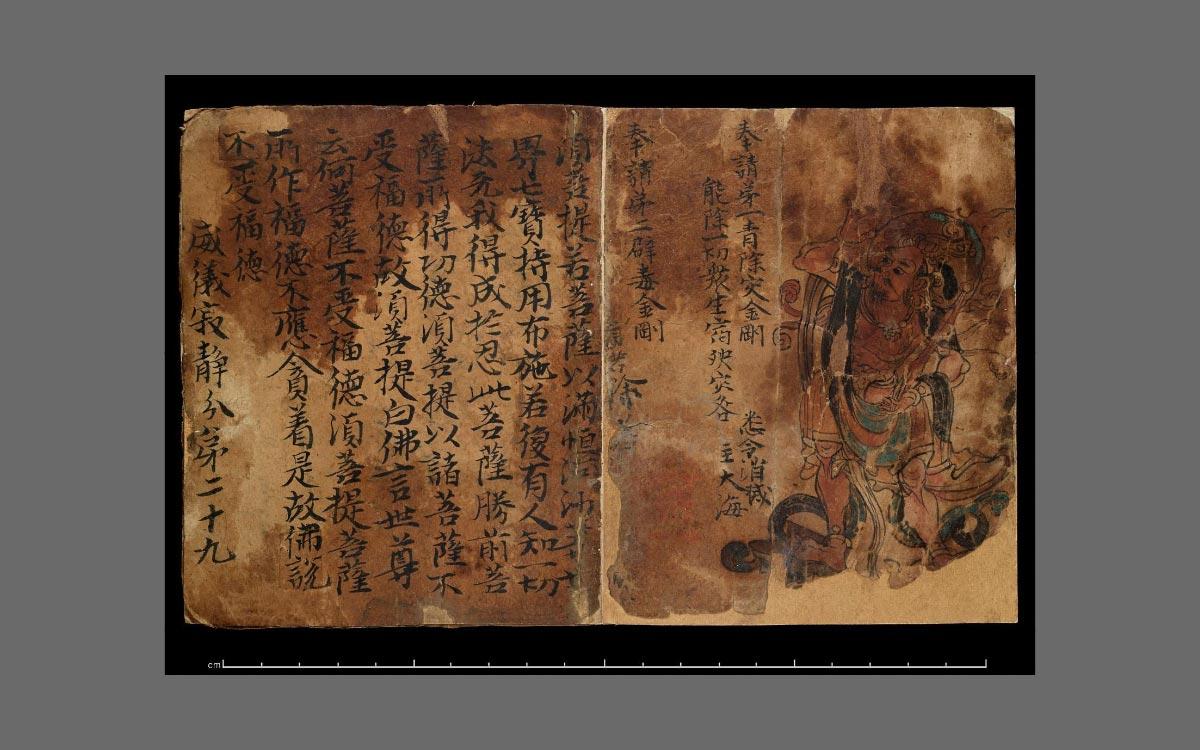 奉請第一青除灾金剛
悉令消滅
能除一切衆生宿殃灾咎
主大海
奉請第二辟毒金剛
須菩提若菩薩以滿恒河沙等
界七寶持用布施若復有人知一切
法无我得成於忍此菩薩勝前菩
薩所得功德須菩提以諸菩薩不
受福德故須菩提白佛言世尊
云何菩薩不受福德須菩提菩薩
所作福德不應貪着是故佛說
不受福德
威儀寂静分第二十九
cm